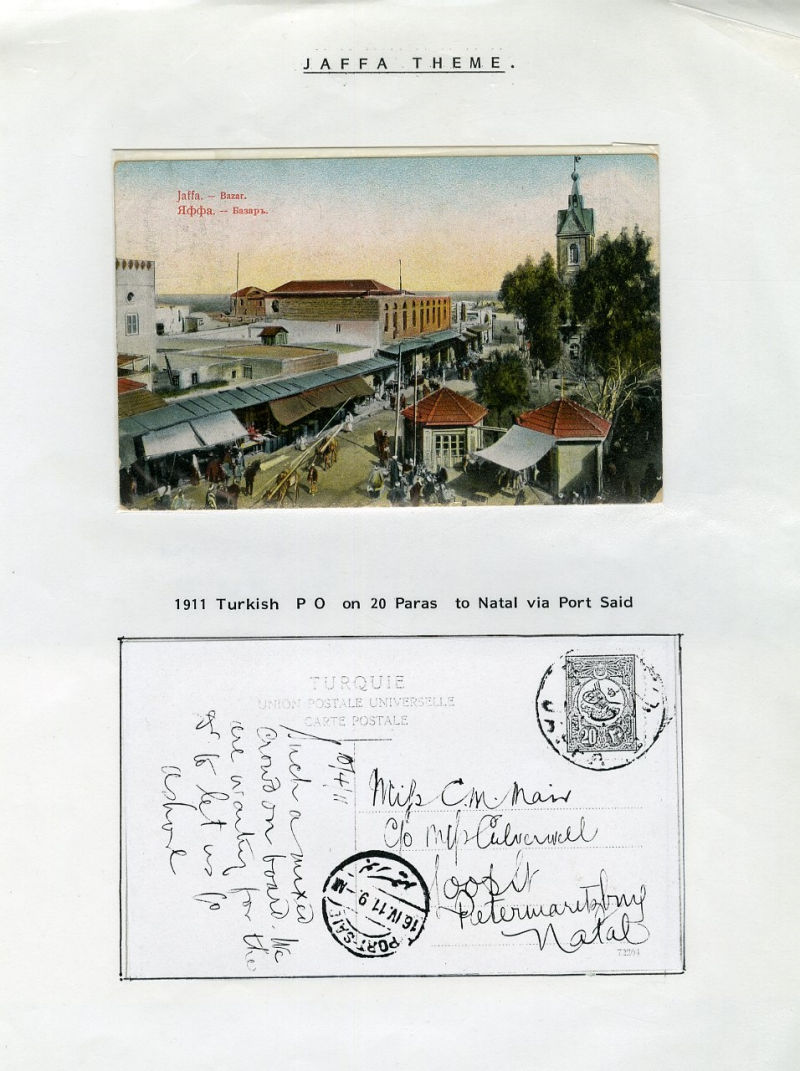 JAFFA THEME.
Jaffa. — Bazar.
Яффа. — Базаръ.
1911 Turkish P O on 20 Paras to Natal via Port Said
TURQUIE
UNION POSTALE UNIVERSELLE
CARTE POSTALE
20
JAFFA
10/4/11
Such a mixed
Crowd on board. We
are waiting for the
to let us go
ashore
Miss C.M. Mair
c/o Miss Culverwell
Loop St
Pietermaritzburg
Natal
PORT-SAID
16.IV.11.9
72204